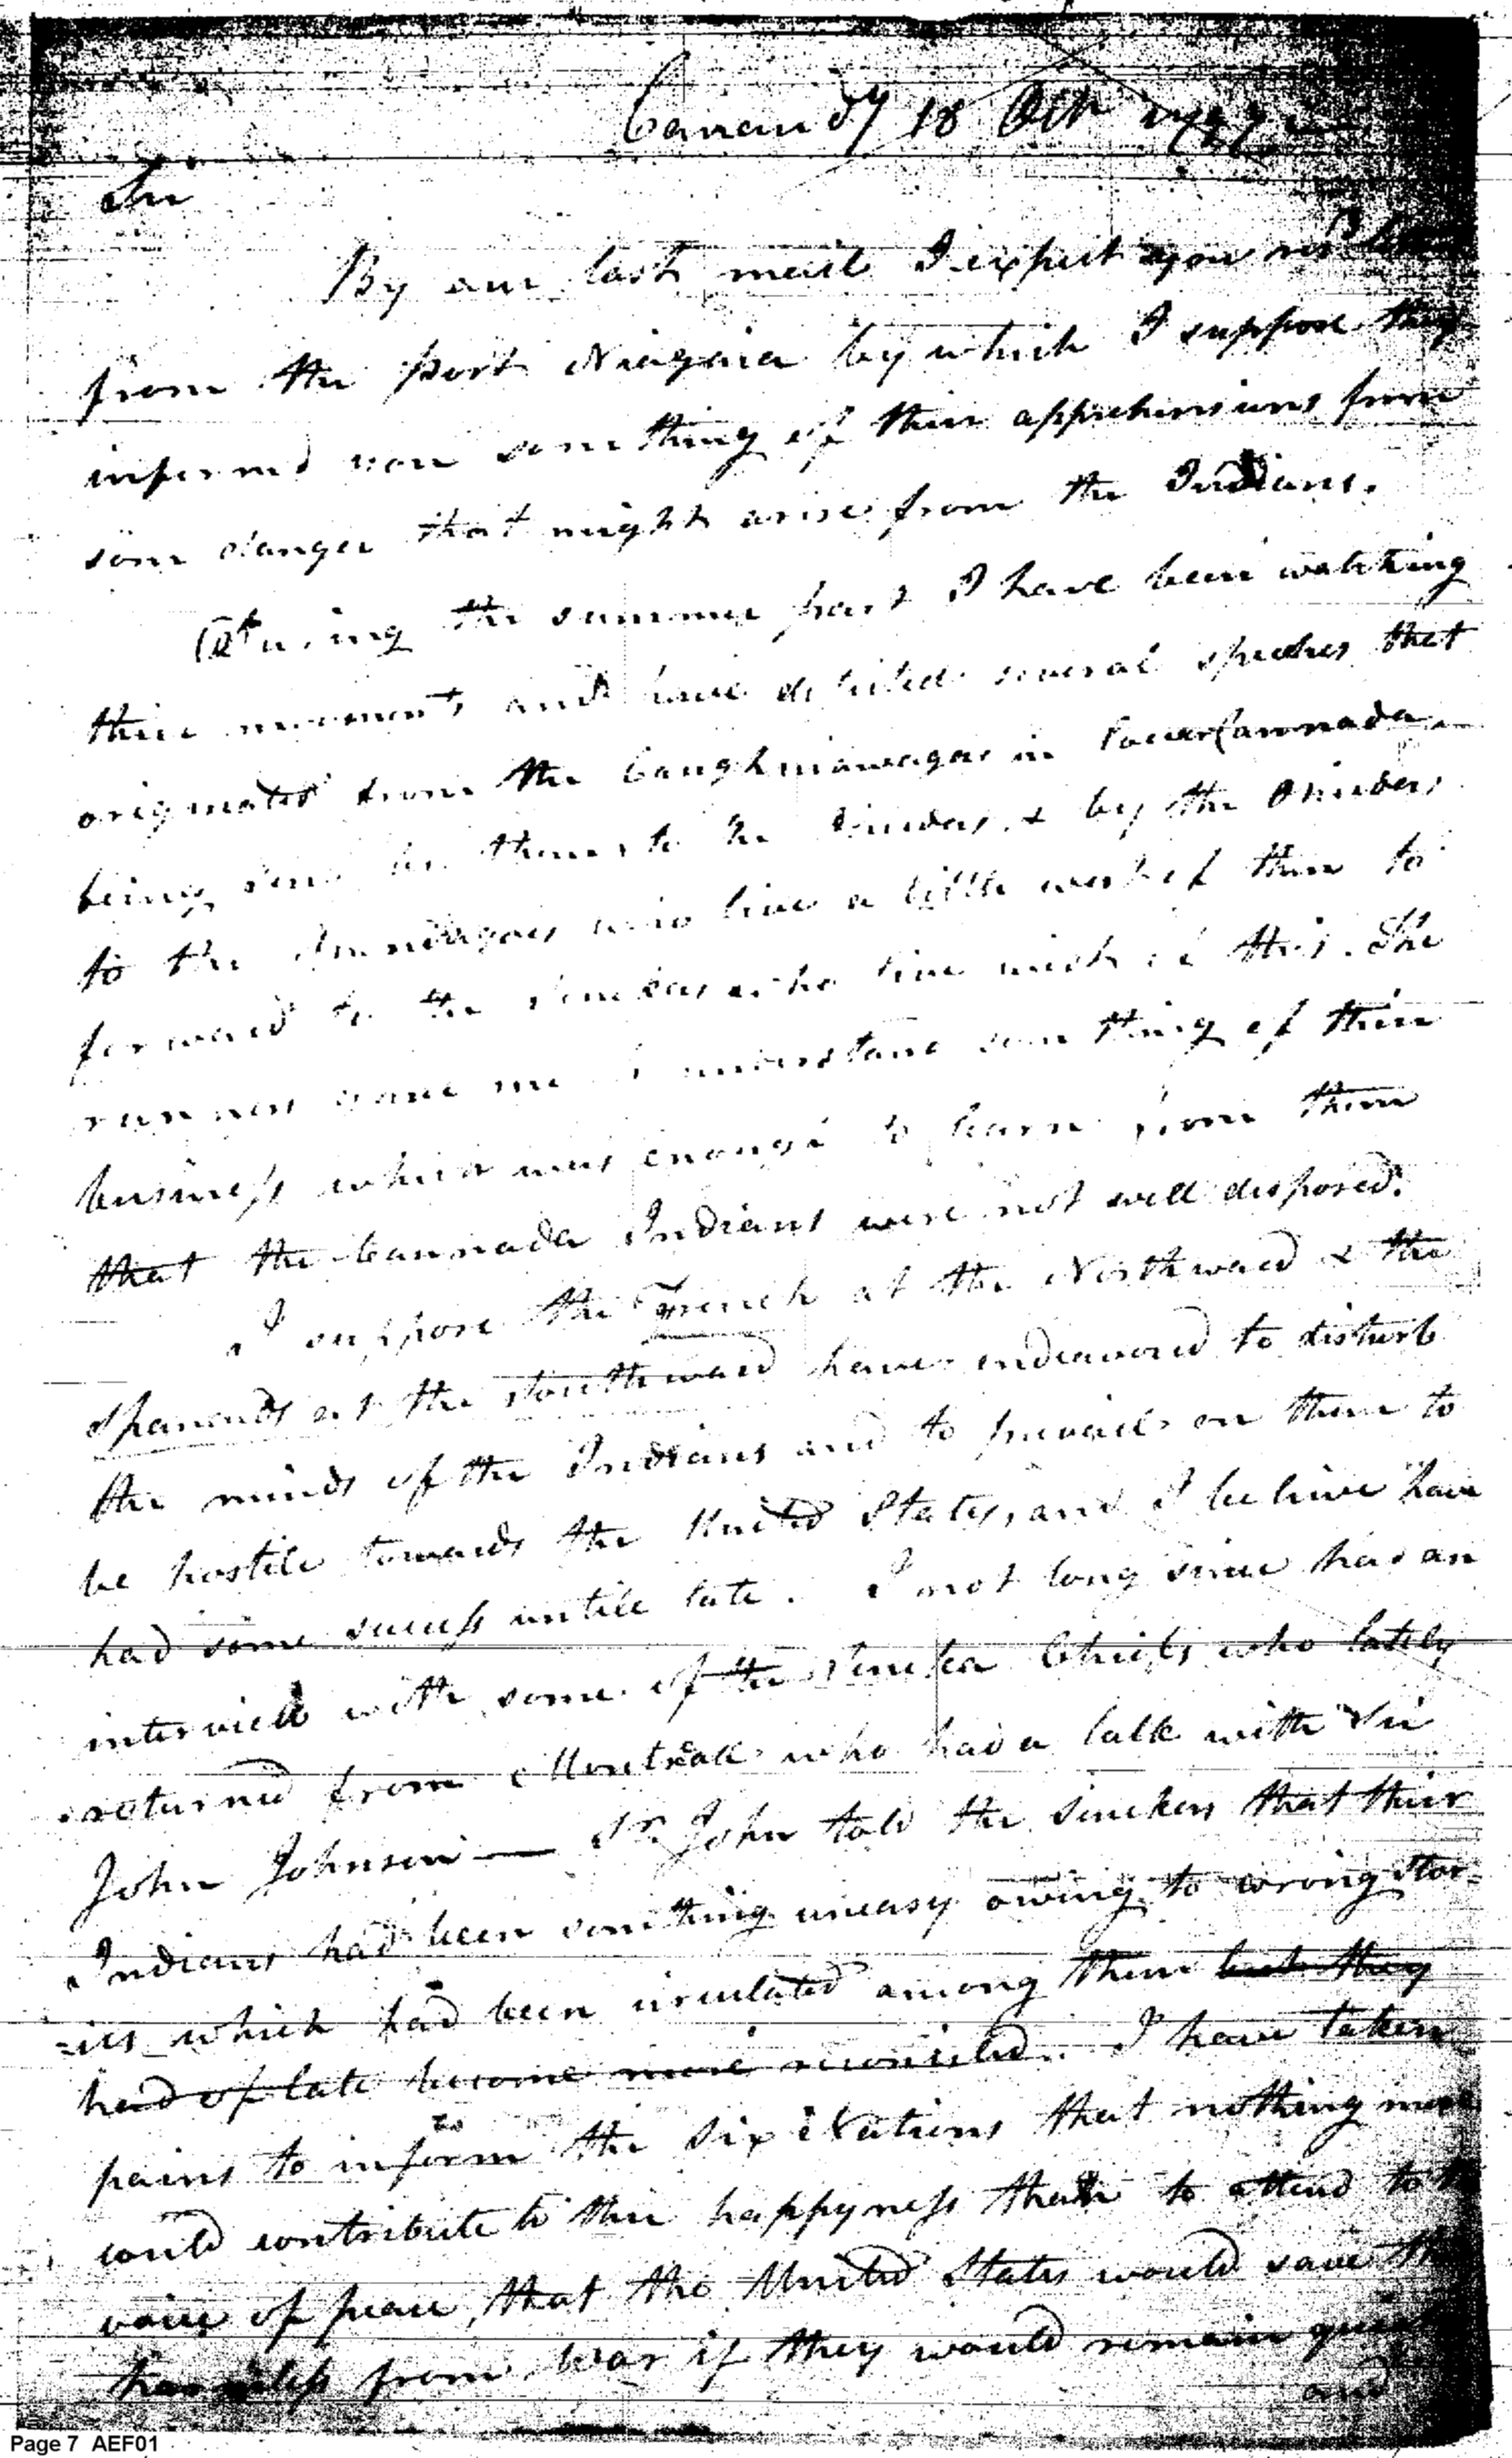 Canandy 18 Oct 1797
Sir
By our last mail I expect you rec'd
from the Port Niagara by which I suppose they
informd you some thing of their apprehensions from
som danger that might arise from the Indians.
During the summer past I have been watching
their movements and have detected several speeches that
originated from the Caughnawagas in Lower Cannada
being sent by them to the Oneidas & by the Oneidas
to the Onondagas who live a little west of them to
forward to the Senekas who live west of this. The
runners gave me to understand som thing of their
business which was enough to learn from them
that the Cannada Indians were not well disposed.
I suppose the French at the Northward & the
Spaniards at the Southward have endeavored to disturb
the minds of the Indians and to prevail on them to
be hostile towards the United States, and I believe have
had some success untill late. I not long since had an
interview with some of the Seneka Chiefs who lately
returned from Montreal who had a talk with Sir
John Johnson — Sr. John told the Senekas that their
Indians had been something uneasy owing to wrong stor=
=ies which had been circulated among them but they
had of late become more reconciled. I have taken
pains to inform the Six Nations that nothing more
could contribute to their happyness than to attend to
voice of peace, that the United States would save
harmless from War if they would remain quiet
and
Page 7 AEF01